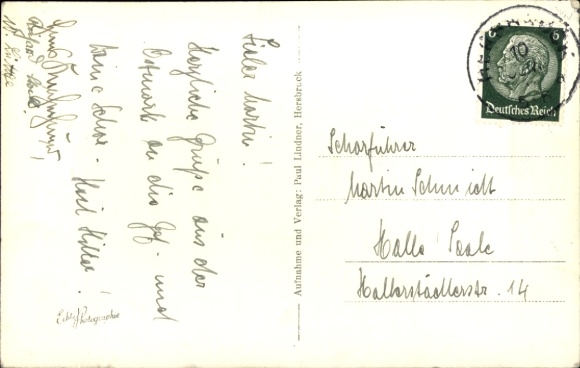 Lieber Martin!
Herzliche Grüße aus der
Ostmark an die Gef. und
Deine Schar. Heil Hitler!
Aufnahme und Verlag: Paul Lindner, Hersbruck
Echte Photographie
6 6
10
Deutsches Reich
Scharführer
Martin Schmidt
Halle/Saale
Halberstädterstr. 14